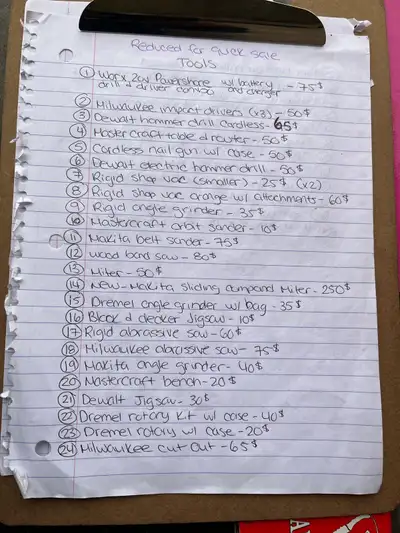 Reduced for quick sale
TOOLS
① Worx 20v Powershare w/ battery - 75$
drill & driver combo and charger
② Milwaukee impact drivers (x3) - 50$
③ Dewalt hammer drill cordless - 65$
④ Mastercraft table & router - 50$
⑤ Cordless nail gun w/ case - 50$
⑥ Dewalt electric hammer drill - 50$
⑦ Rigid shop vac (smaller) - 25$ (x2)
⑧ Rigid shop vac orange w/ attachments - 60$
⑨ Rigid angle grinder - 35$
⑩ Mastercraft orbit sander - 10$
⑪ Makita belt sander - 75$
⑫ wood band saw - 80$
⑬ Miter - 50$
⑭ New - Makita sliding compound Miter - 250$
⑮ Dremel angle grinder w/ bag - 35$
⑯ Black & decker Jigsaw - 10$
⑰ Rigid abrassive saw - 60$
⑱ Milwaukee abrassive saw - 75$
⑲ Makita angle grinder - 40$
⑳ Mastercraft bench - 20$
㉑ Dewalt Jigsaw - 30$
㉒ Dremel rotary Kit w/ case - 40$
㉓ Dremel rotary w/ case - 20$
㉔ Milwaukee cut out - 65$